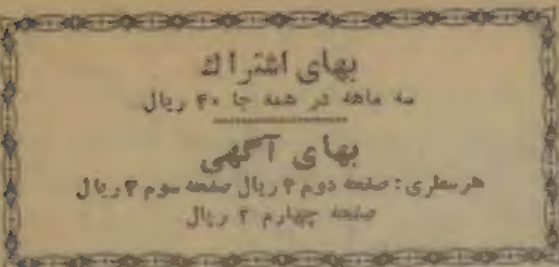 بهای اشتراك
سه ماهه در همه جا ۴۰ ریال
بهای آگهی
هر سطری: صفحه دوم ۴ ریال صفحه سوم ۳ ریال
صفحه چهارم ۲ ریال